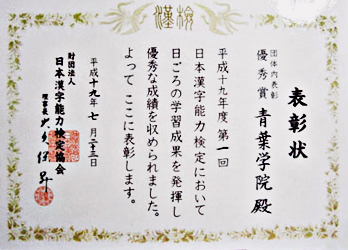 漢検
表彰状
団体内表彰
優秀賞 青葉学院 殿
平成十九年度 第一回
日本漢字能力検定において
日ごろの学習成果を発揮し
優秀な成績を収められました。
よって ここに表彰します。
平成十九年 七月二十三日
財団法人
日本漢字能力検定協会
理事長 大久保 昇